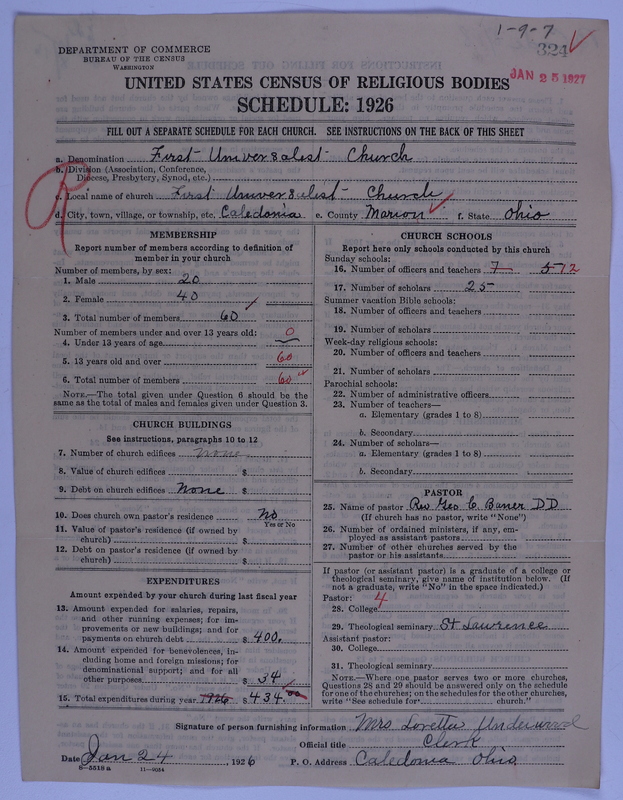 1-9-7
324
DEPARTMENT OF COMMERCE
BUREAU OF THE CENSUS
WASHINGTON
JAN 25 1927
UNITED STATES CENSUS OF RELIGIOUS BODIES
SCHEDULE: 1926
FILL OUT A SEPARATE SCHEDULE FOR EACH CHURCH. SEE INSTRUCTIONS ON THE BACK OF THIS SHEET
R
a. Denomination First Universalist Church
b. Division (Association, Conference,
Diocese, Presbytery, Synod, etc.)
c. Local name of church First Universalist Church
d. City, town, village, or township, etc. Caledonia e. County Marion f. State Ohio
MEMBERSHIP
Report number of members according to definition of
member in your church
Number of members, by sex:
1. Male 20
2. Female 40
3. Total number of members 60
Number of members under and over 13 years old:
4. Under 13 years of age 0
5. 13 years old and over 60
6. Total number of members 60
NOTE.—The total given under Question 6 should be
same as the total of males and females given under Question 3.
CHURCH BUILDINGS
See instructions, paragraphs 10 to 12
7. Number of church edifices none
8. Value of church edifices $
9. Debt on church edifices None $
10. Does church own pastor's residence No
Yes or No
11. Value of pastor's residence (if owned by
church) $
12. Debt on pastor's residence (if owned by
church) $
EXPENDITURES
Amount expended by your church during last fiscal year
13. Amount expended for salaries, repairs,
and other running expenses; for im-
provements or new buildings; and for
payments on church debt $ 400.
14. Amount expended for benevolences, in-
cluding home and foreign missions; for
denominational support; and for all
other purposes $ 34
15. Total expenditures during year 1926 $ 434.00
CHURCH SCHOOLS
Report here only schools conducted by this church
Sunday schools:
16. Number of officers and teachers 7 572
17. Number of scholars 25
Summer vacation Bible schools:
18. Number of officers and teachers
19. Number of scholars
Week-day religious schools:
20. Number of officers and teachers
21. Number of scholars
Parochial schools:
22. Number of administrative officers
23. Number of teachers—
a. Elementary (grades 1 to 8)
b. Secondary
24. Number of scholars—
a. Elementary (grades 1 to 8)
b. Secondary
PASTOR
25. Name of pastor Rev Geo C. Baner DD
(If church has no pastor, write "None")
26. Number of ordained ministers, if any, em-
ployed as assistant pastors
27. Number of other churches served by the
pastor or his assistants
If pastor (or assistant pastor) is a graduate of a college or
theological seminary, give name of institution below. (If
not a graduate, write "No" in the space indicated.)
Pastor: 4
28. College
29. Theological seminary St Lawrence
Assistant pastor:
30. College
31. Theological seminary
NOTE.—Where one pastor serves two or more churches,
Questions 28 and 29 should be answered only on the schedule
for one of the churches; on the schedules for the other churches,
write "See schedule for church."
Signature of person furnishing information Mrs. Loretta Underwood
Official title Clerk
Date Jan 24, 1926 P. O. Address Caledonia Ohio.
8-5518a 11-9054